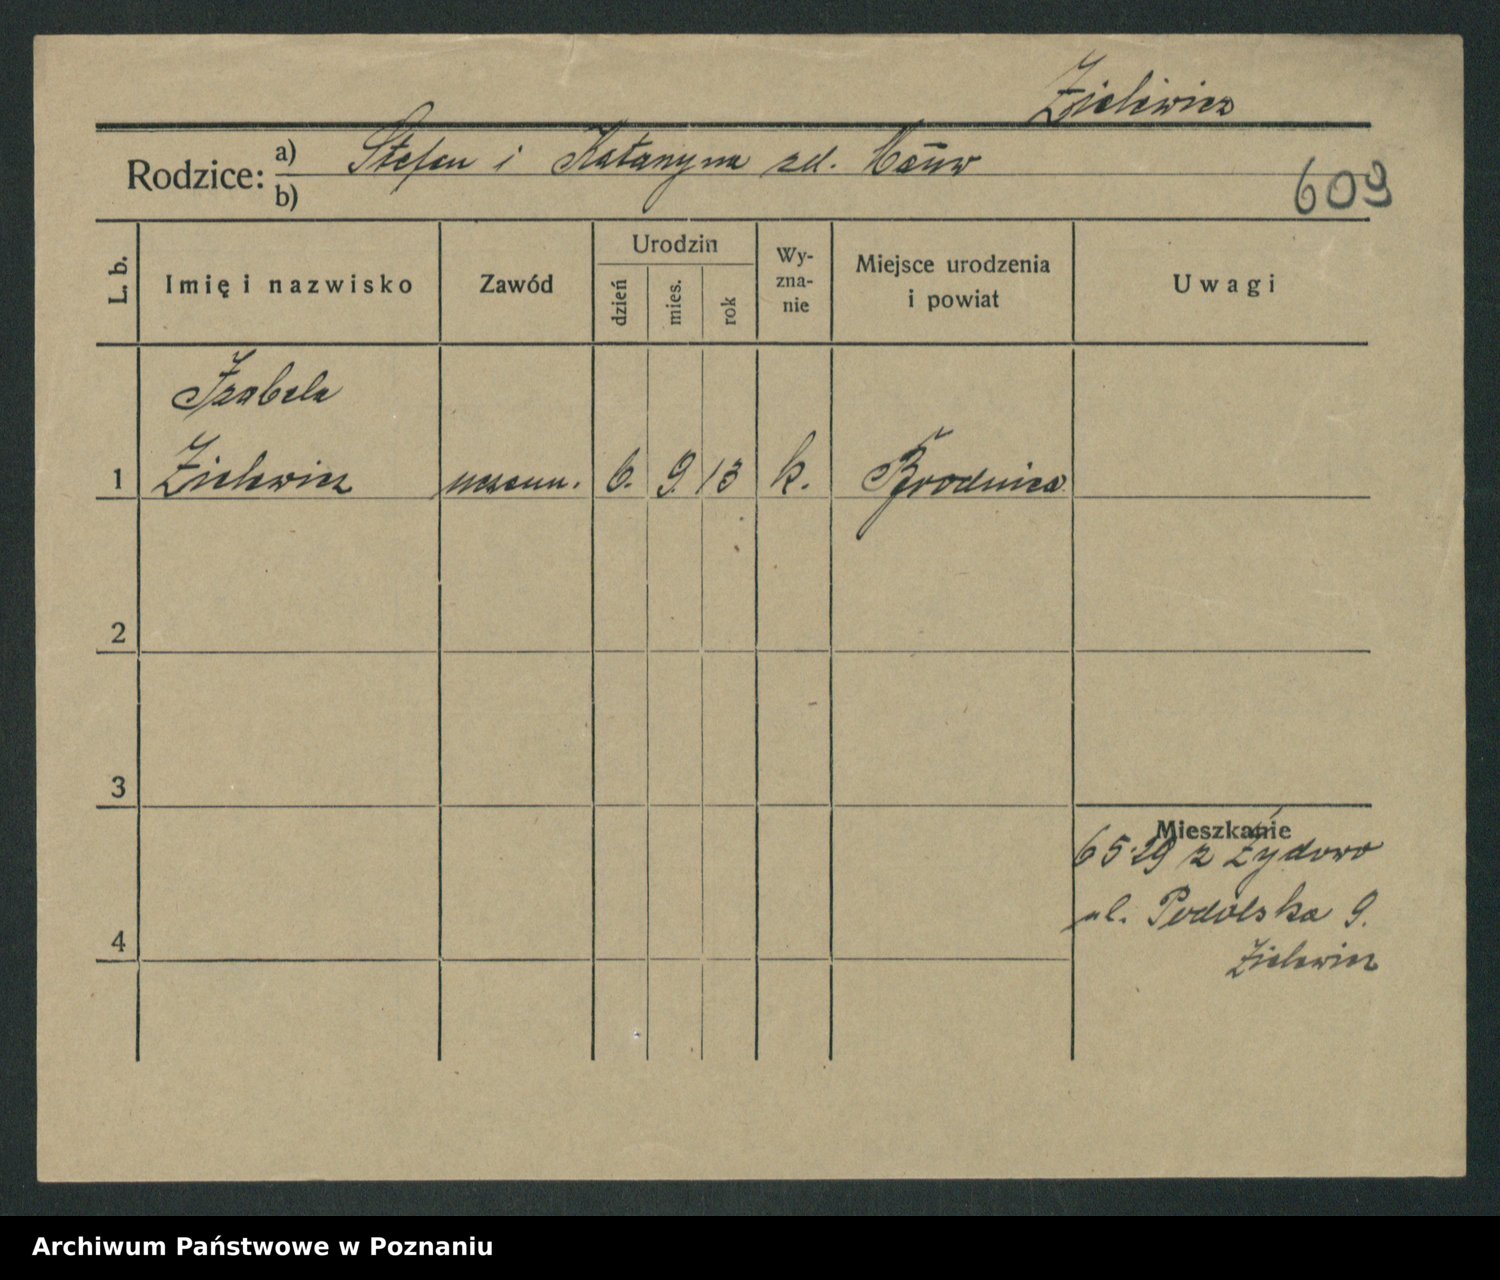 Zielewicz
Rodzice: a) Stefan i Katarzyna zd.
b)
609
L. b.
Imię i nazwisko
Zawód
Urodzin
dzień
mies.
rok
Wy-
zna-
nie
Miejsce urodzenia
i powiat
Uwagi
Izabela
1 Zielewicz uczenn. 6. 9. 13 k. Brodnica
2
3
4
Mieszkanie
6 5·29 z Żydowo
ul. Podolska 9.
Zielewicz
Archiwum Państwowe w Poznaniu